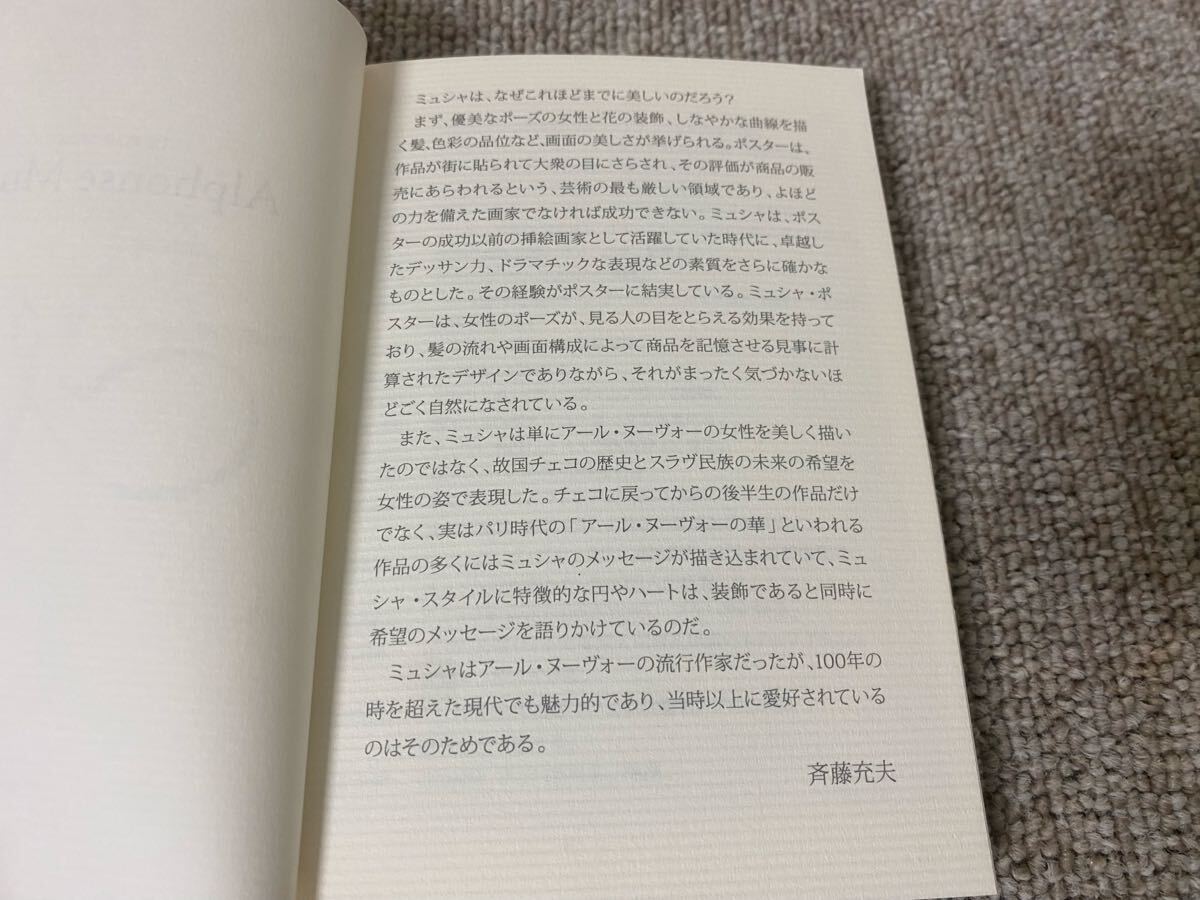 Alphonse Mu
ミュシャは、なぜこれほどまでに美しいのだろう?
まず、優美なポーズの女性と花の装飾、しなやかな曲線を描
く髪、色彩の品位など、画面の美しさが挙げられる。ポスターは、
作品が街に貼られて大衆の目にさらされ、その評価が商品の販
売にあらわれるという、芸術の最も厳しい領域であり、よほど
の力を備えた画家でなければ成功できない。ミュシャは、ポス
ターの成功以前の挿絵画家として活躍していた時代に、卓越し
たデッサン力、ドラマチックな表現などの素質をさらに確かな
ものとした。その経験がポスターに結実している。ミュシャ・ポ
スターは、女性のポーズが、見る人の目をとらえる効果を持って
おり、髪の流れや画面構成によって商品を記憶させる見事に計
算されたデザインでありながら、それがまったく気づかないほ
どごく自然になされている。
また、ミュシャは単にアール・ヌーヴォーの女性を美しく描い
たのではなく、故国チェコの歴史とスラヴ民族の未来の希望を
女性の姿で表現した。チェコに戻ってからの後半生の作品だけ
でなく、実はパリ時代の「アール・ヌーヴォーの華」といわれる
作品の多くにはミュシャのメッセージが描き込まれていて、ミュ
シャ・スタイルに特徴的な円やハートは、装飾であると同時に
希望のメッセージを語りかけているのだ。
ミュシャはアール・ヌーヴォーの流行作家だったが、100年の
時を超えた現代でも魅力的であり、当時以上に愛好されている
のはそのためである。
斉藤充夫